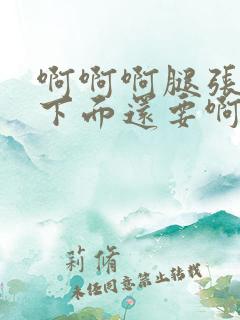 啊啊啊腿張
下而還要啊
莉脩
未经同意禁止转载